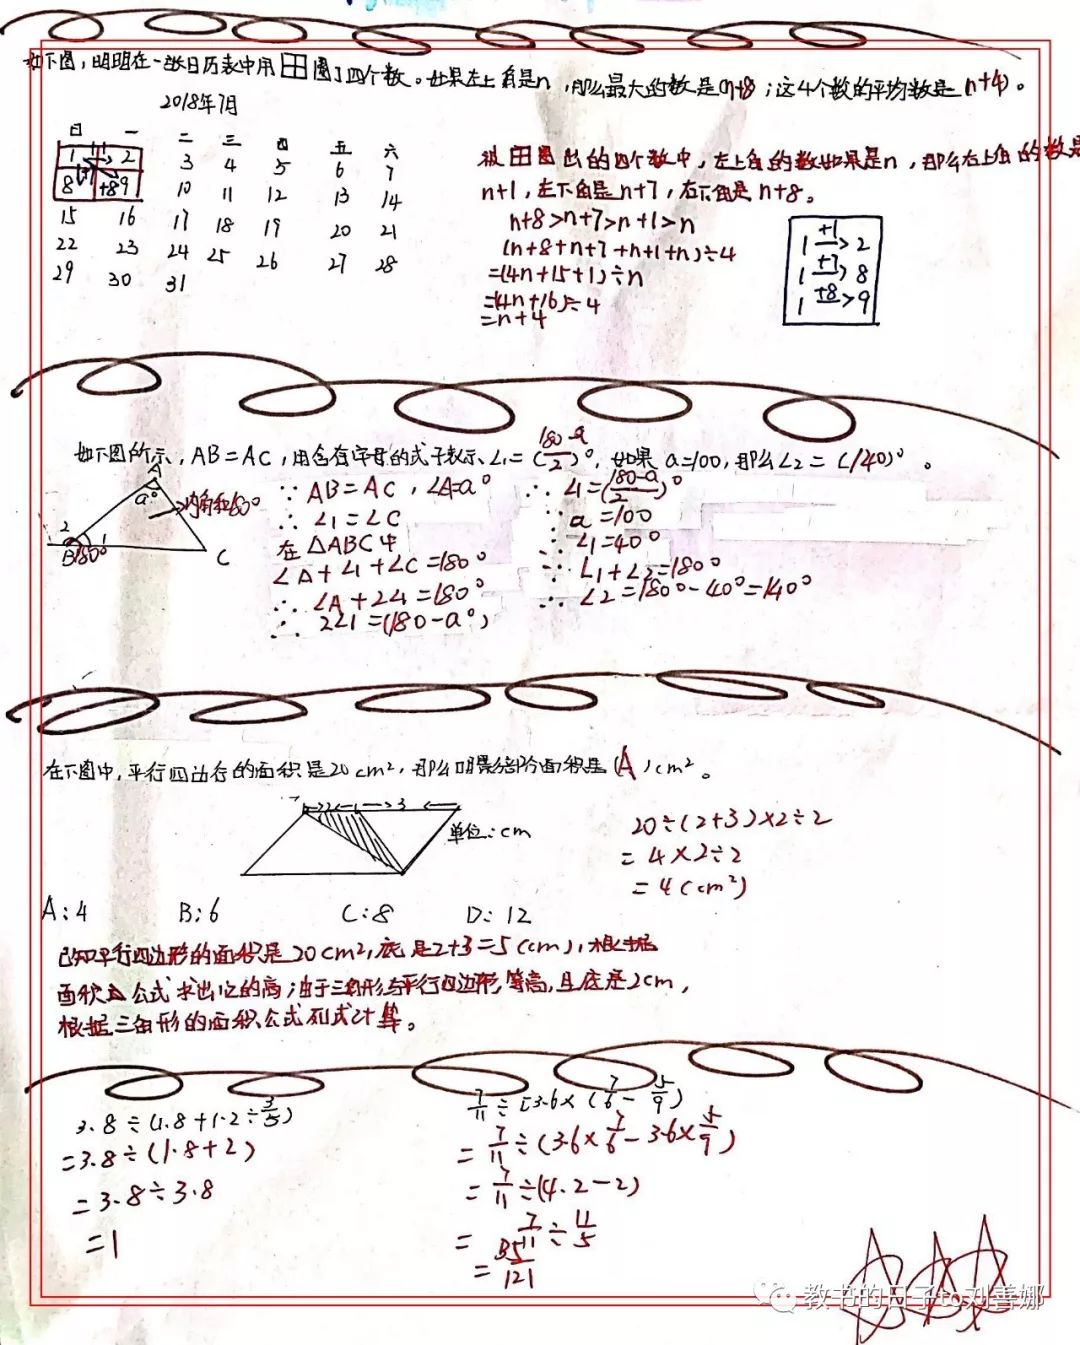 如下图，明明在一张日历表中用田圈了四个数。如果左上角是n，那么最大的数是(n+8)；这4个数的平均数是(n+4)。
2018年7月
日 一 二 三 四 五 六
1 2 3 4 5 6 7
8 +8 9 10 11 12 13 14
15 16 17 18 19 20 21
22 23 24 25 26 27 28
29 30 31
被田圈出的四个数中，左上角的数如果是n，那么右上角的数是
n+1，左下角是n+7，右下角是n+8。
n+8>n+7>n+1>n
(n+8+n+7+n+1+n)÷4
=(4n+15+1)÷n
=(4n+16)÷4
=n+4
1 +1> 2
1 +7> 8
1 +8> 9
如下图所示，AB=AC，用含有字母的式子表示∠1=(180-a/2)°，如果a=100，那么∠2=(140)°。
A
a°
内角和180°
2
B 180° 1
C
∵ AB=AC，∠A=a°
∴ ∠1=∠C
在△ABC中
∠A+∠1+∠C=180°
∴ ∠A+2∠1=180°
∴ 2∠1=(180-a°)
∴ ∠1=(180-a/2)°
∵ a=100
∴ ∠1=40°
∵ ∠1+∠2=180°
∴ ∠2=180°-40°=140°
在下图中，平行四边行的面积是20cm²，那么阴影部分面积是(A)cm²。
2 3
单位：cm
20÷(2+3)×2÷2
=4×2÷2
=4(cm²)
A:4 B:6 C:8 D:12
已知平行四边形的面积是20cm²，底是2+3=5(cm)，根据
面积公式求出它的高；由于三角形与平行四边形等高，且底是2cm，
根据三角形的面积公式列式计算。
3.8÷(1.8+1.2÷3/5)
=3.8÷(1.8+2)
=3.8÷3.8
=1
7/11÷[3.6×(7/6-5/9)
=7/11÷(3.6×7/6-3.6×5/9)
=7/11÷(4.2-2)
=7/11÷11/5
=35/121
教书的日子to刘善娜